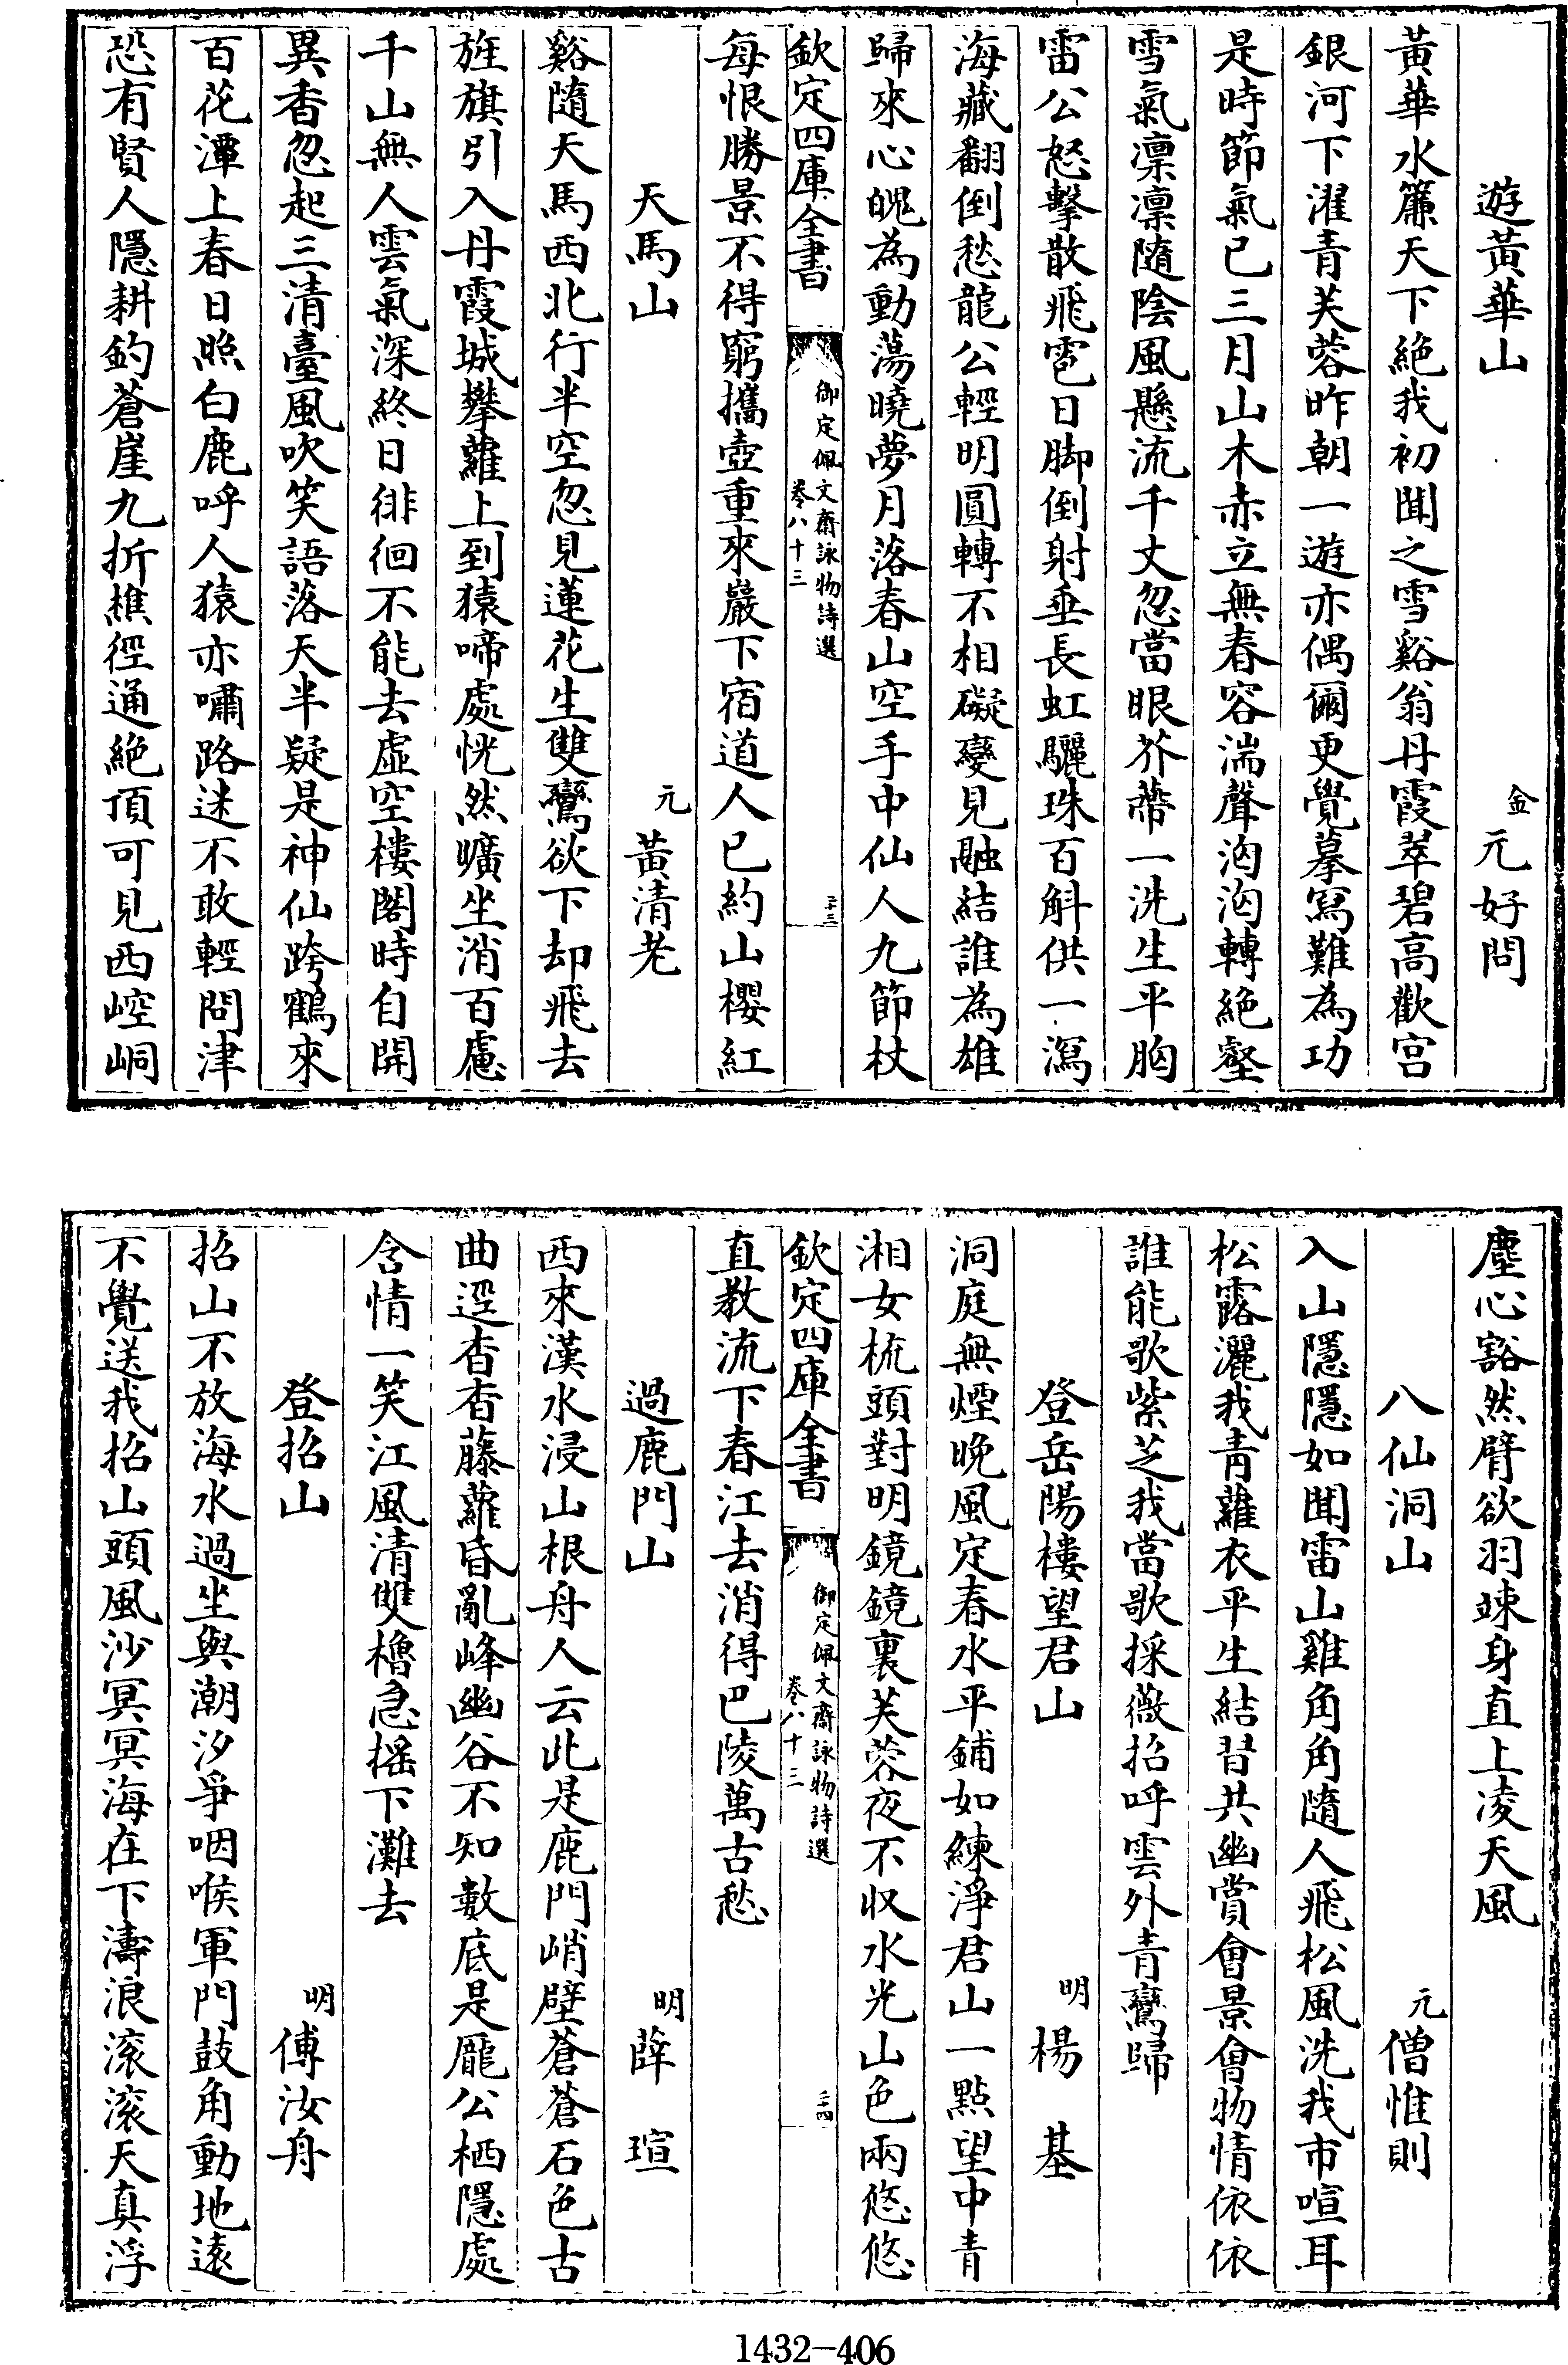 遊黃華山
金
元好問
黃華水簾天下絶我初聞之雪谿翁丹霞翠碧高歡宫
銀河下濯青芙蓉昨朝一遊亦偶爾更覺摹寫難為功
是時節氣已三月山木赤立無春容湍聲洶洶轉絶壑
雪氣凛凛隨陰風懸流千丈忽當眼芥蔕一洗生平胸
雷公怒擊散飛雹日脚倒射垂長虹驪珠百斛供一瀉
海藏翻倒愁龍公輕明圓轉不相礙變見融結誰為雄
歸來心魄為動蕩曉夢月落春山空手中仙人九節杖
欽定四庫全書
御定佩文齋詠物詩選
卷八十三
三十三
每恨勝景不得窮攜壺重來巖下宿道人已約山櫻紅
天馬山
元
黃清老
谿隨天馬西北行半空忽見蓮花生雙鸞欲下却飛去
旌旗引入丹霞城攀蘿上到猿啼處恍然曠坐消百慮
千山無人雲氣深終日徘徊不能去虛空樓閣時自開
異香忽起三清臺風吹笑語落天半疑是神仙跨鶴來
百花潭上春日照白鹿呼人猿亦嘯路迷不敢輕問津
恐有賢人隱耕釣蒼崖九折樵徑通絶頂可見西崆峒
塵心豁然臂欲羽竦身直上凌天風
八仙洞山
元
僧惟則
入山隱隱如聞雷山雞角角隨人飛松風洗我市喧耳
松露灑我青蘿衣平生結習共幽賞會景會物情依依
誰能歌紫芝我當歌採薇招呼雲外青鸞歸
登岳陽樓望君山
明
楊基
洞庭無煙晚風定春水平鋪如練淨君山一點望中青
湘女梳頭對明鏡鏡裏芙蓉夜不收水光山色兩悠悠
欽定四庫全書
御定佩文齋詠物詩選
卷八十三
三十四
直教流下春江去消得巴陵萬古愁
過鹿門山
明
薛瑄
西來漢水浸山根舟人云此是鹿門峭壁蒼蒼石色古
曲逕杳杳藤蘿昏亂峰幽谷不知數底是龎公栖隱處
含情一笑江風清雙櫓急摇下灘去
登招山
明
傅汝舟
招山不放海水過坐與潮汐爭咽喉軍門鼓角動地遠
不覺送我招山頭風沙冥冥海在下濤浪滚滚天真浮
1432-406